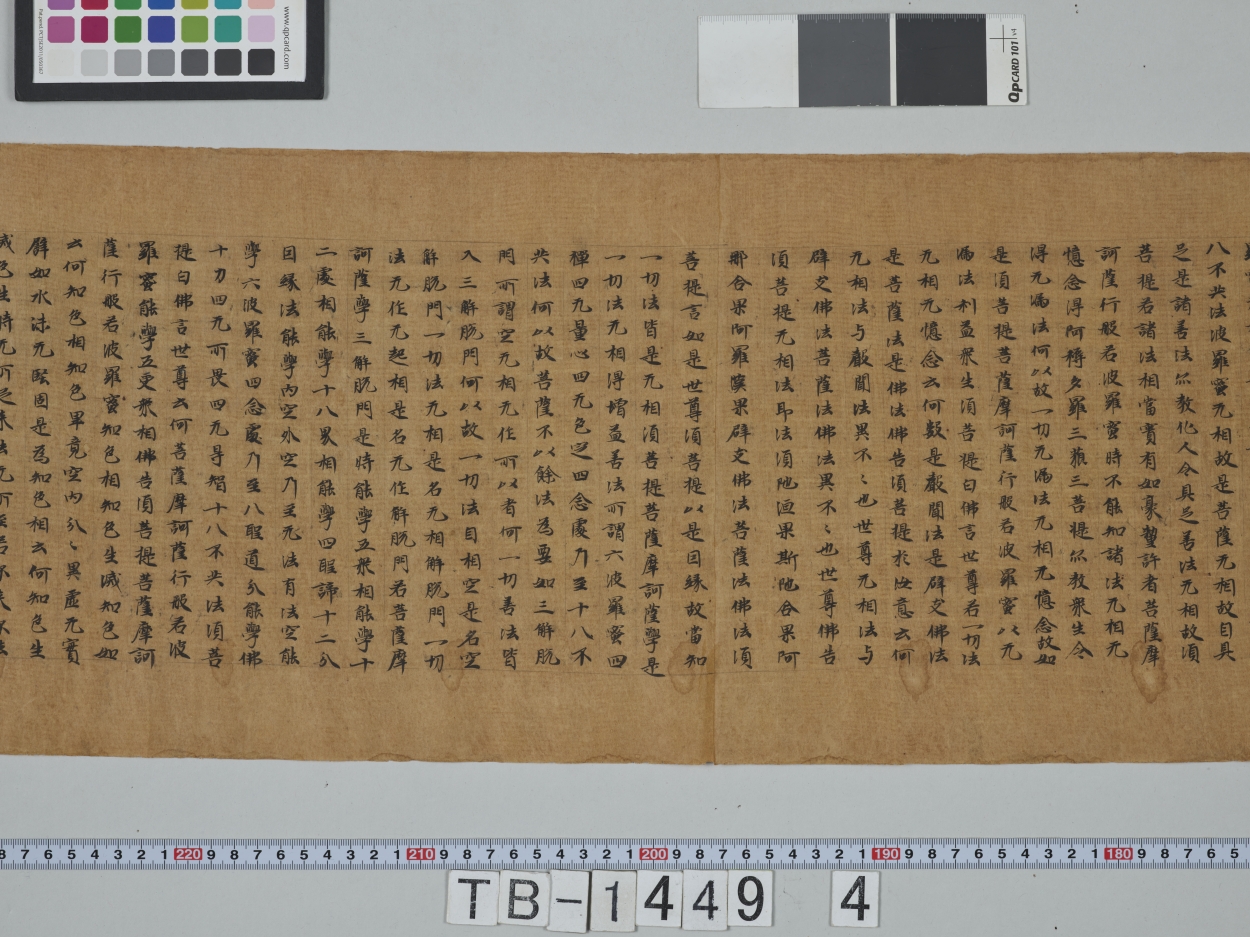 八不共法波羅蜜无相故是菩薩无相故自具
足是諸善法亦教化人令具足善法无相故須
菩提若諸法相當實有如豪氂許者菩薩摩
訶薩行般若波羅蜜時不能知諸法无相无
憶念得阿耨多羅三藐三菩提亦教衆生令
得无漏法何以故一切无漏法无相无憶念故如
是須菩提菩薩摩訶薩行般若波羅蜜以无
漏法利益衆生須菩提白佛言世尊若一切法
无相无憶念云何數是聲聞法是辟支佛法
是菩薩法是佛法佛告須菩提於汝意云何
无相法与聲聞法異不不也世尊无相法与
辟支佛法菩薩法佛法異不不也世尊佛告
須菩提无相法耶法須陁洹果斯陁含果阿
那含果阿羅漢果辟支佛法菩薩法佛法須
菩提言如是世尊須菩提以是因緣故當知
一切法皆是无相須菩提菩薩摩訶薩學是
一切法无相得增益善法所謂六波羅蜜四
禪四无量心四无色定四念處乃至十八不
共法何以故菩薩不以餘法為要如三解脫
門所謂空无相无作所以者何一切善法皆
入三解脫門何以故一切法自相空是名空
解脫門一切法无相是名无相解脫門一切
法无作无起相是名无作解脫門若菩薩摩
訶薩學三解脫門是時能學五衆相能學十
二處相能學十八界相能學四聖諦十二分
因緣法能學內空外空乃至无法有法空能
學六波羅蜜四念處乃至八聖道分能學佛
十力四无所畏四无㝵智十八不共法須菩
提白佛言世尊云何菩薩摩訶薩行般若波
羅蜜能學五受衆相佛告須菩提菩薩摩訶
薩行般若波羅蜜知色相知色生滅知色如
云何知色相知色畢竟空內分分異虛无實
辟如水沫无堅固是為知色相云何知色生
www.qpcard.com
QpCARD 101 v4
8 7 6 5 4 3 2 1 220 9 8 7 6 5 4 3 2 1 210 9 8 7 6 5 4 3 2 1 200 9 8 7 6 5 4 3 2 1 190 9 8 7 6 5 4 3 2 1 180 9 8 7 6 5
TB-1449 4